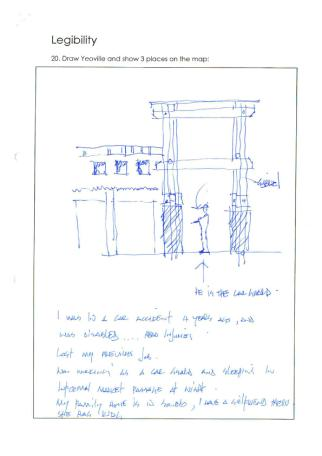 Legibility
20. Draw Yeoville and show 3 places on the map:
HE IS THE CAR GUARD.
I WAS IN A CAR ACCIDENT 4 YEARS AGO, AND
WAS DISABLED .... HEAD INJURIES
LOST MY PREVIOUS JOB.
NOW WORKING AS A CAR GUARD AND SLEEPING IN
INFORMAL MARKET PASSAGE AT NIGHT.
MY FAMILY HOME IS IN SOWETO, I HAVE A GIRLFRIEND THERE
SHE HAS KIDS.